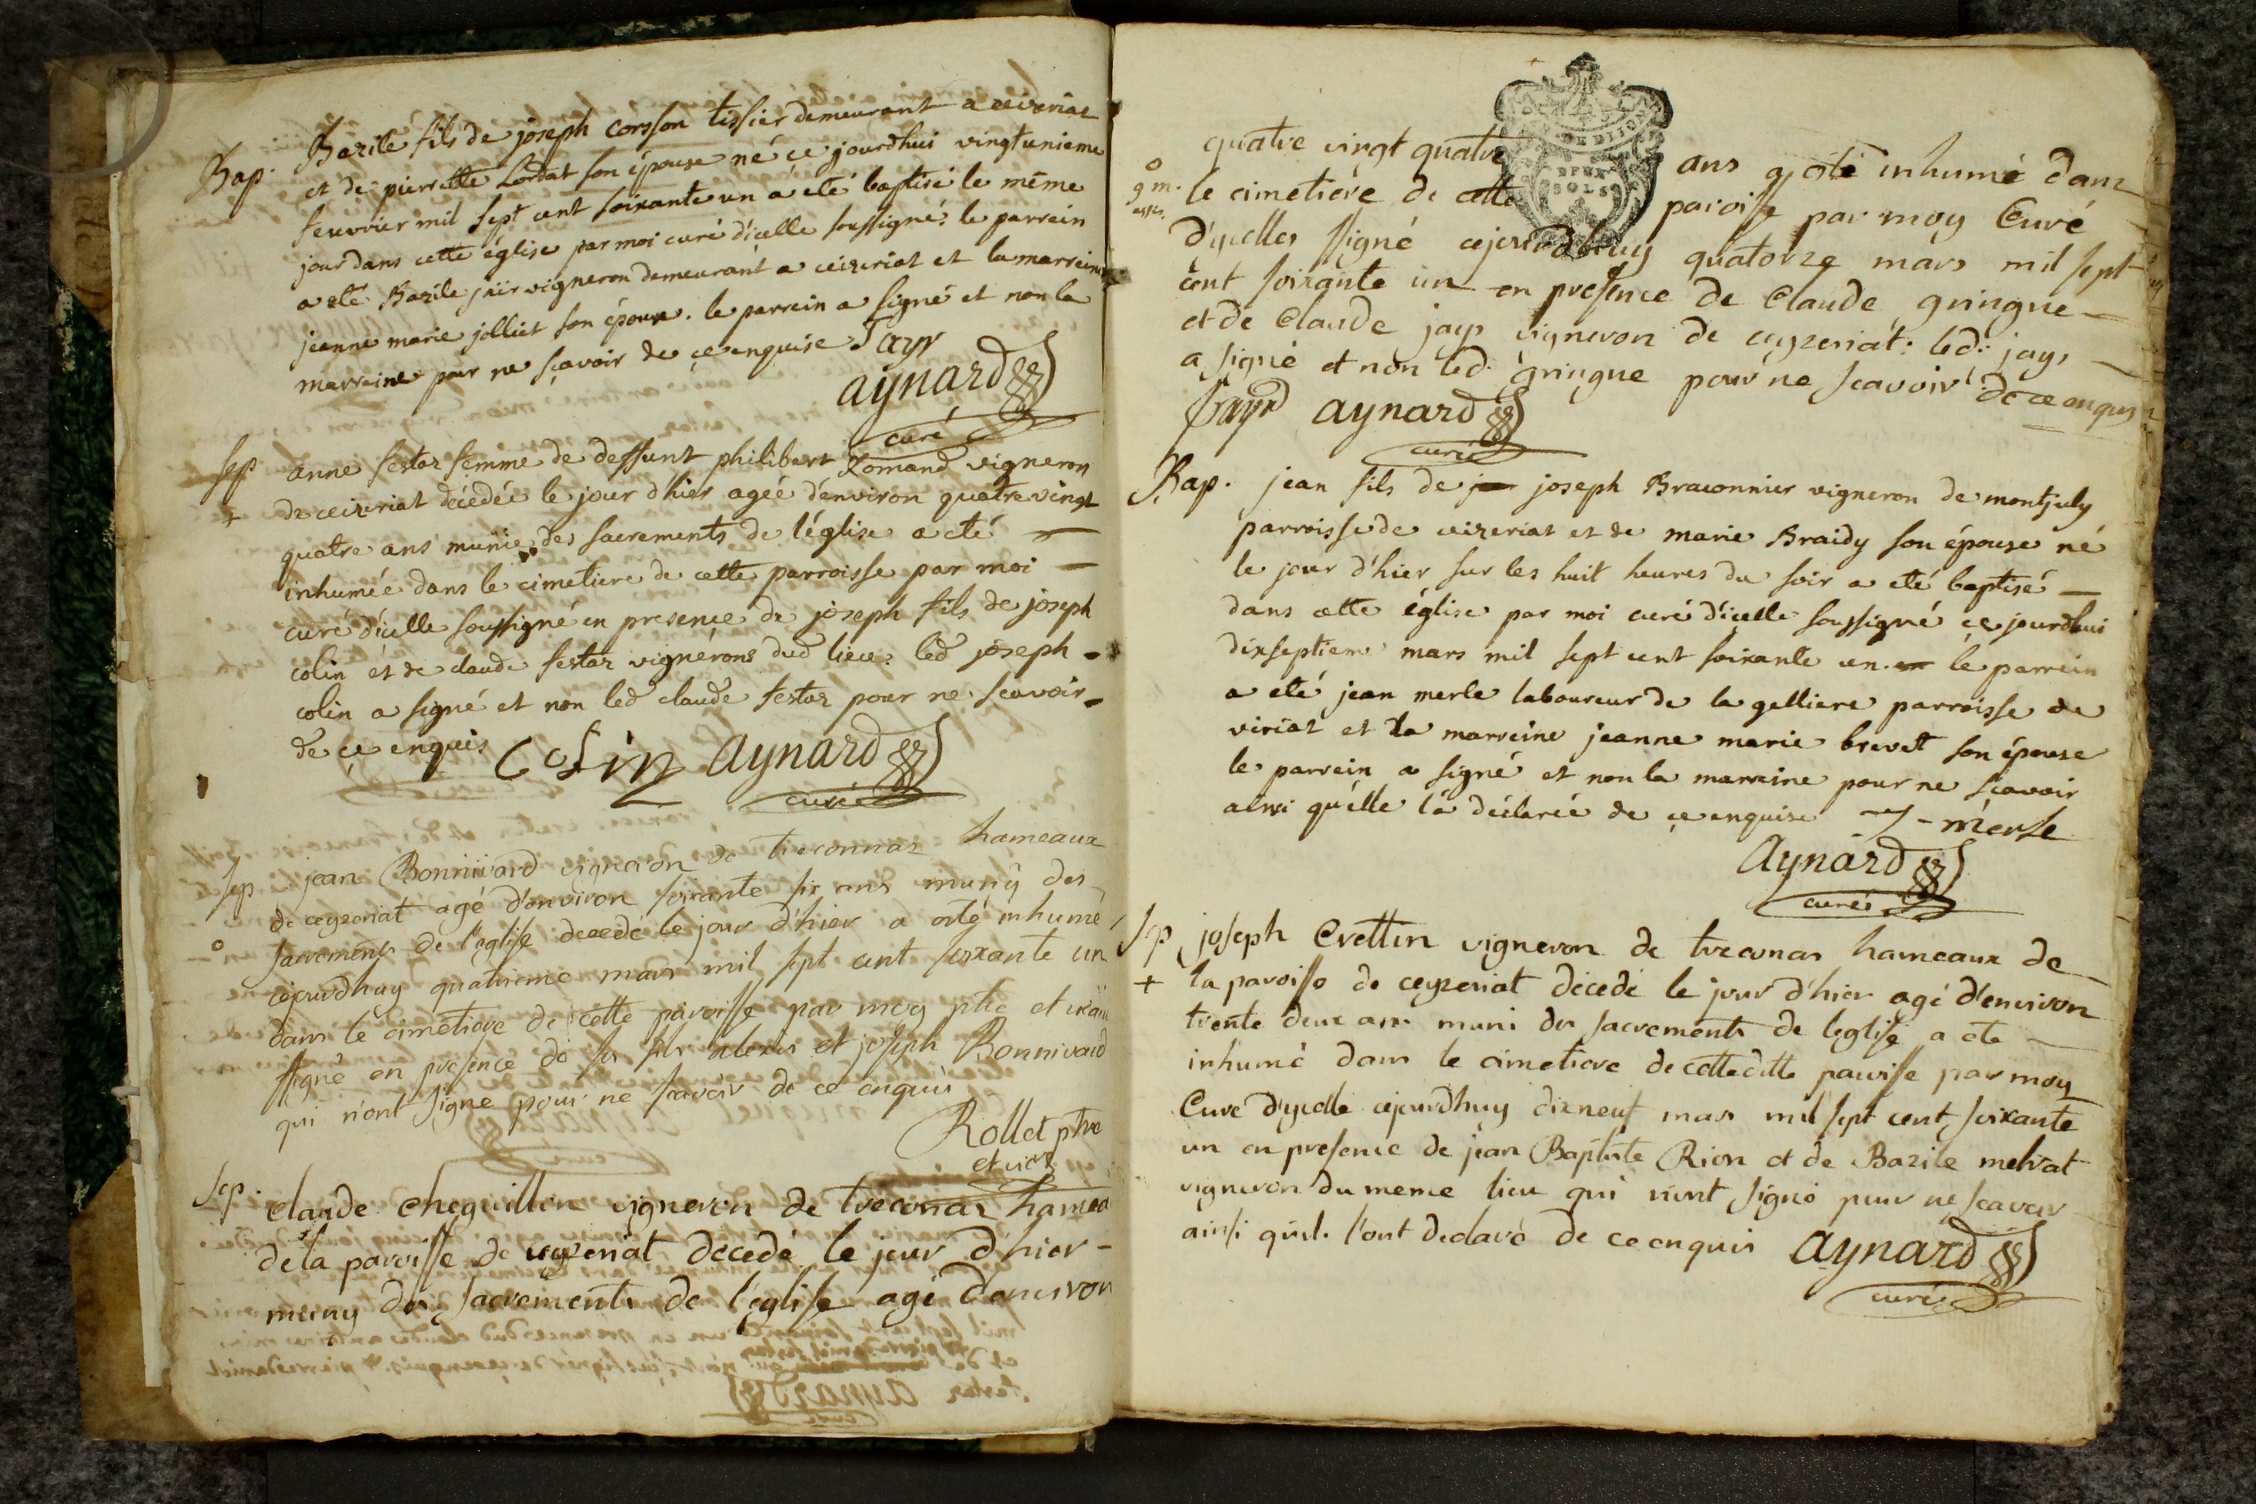 Bap. Bazile fils de joseph corsson tissier demeurant a ceizeriat
et de pierrette Lordat son épouse né ce jourdhui vingtunieme
feuvrier mil sept cent soixante un a eté baptisé le même
jour dans cette église par moi curé d'icelle soussigné: le parrein
a eté Bazile jaïr vigneron demeurant a ceizeriat et la marreine
jeanne marie jolliet son épouse. le parrein a signé et non la
marreine pour ne sçavoir de ce enquise Jayr
aynard
curé
sep + anne festaz femme de deffunt philibert Romand vigneron
de ceizeriat décédée le jour d'hier agéé d'environ quatre vingt
quatre ans munie des sacrements de l'église a eté
inhumée dans le cimetiere de cette parroisse par moi
curé d'icelle soussigné en presence de joseph fils de joseph
colin et de claude festaz vignerons dud lieu: led joseph
colin a signé et non led claude festaz pour ne scavoir
de ce enquis Colin aynard
curé
sep o jean Bonnivard vigneron de treconnaz hameaux
de ceyzeriat agé d'environ soixante six ans muny des
sacrements de l'eglise decedé le jour d'hier a eté inhumé
cejourdhuy quatrieme mars mil sept cent soixante un
dans le cimetiere de cette paroisse par moy ptre et vicaire
ssigné en presence de ses fils alexis et joseph Bonnivard
qui n'ont signé pour ne scavoir de ce enquis
Rollet ptre
et vicre
sep. claude cheguillin vigneron de treconaz hamea
de la paroisse de ceyzeriat decedé le jour d'hier
muny des sacrements de l'eglise agé d'environ
quatre vingt quatre ans a eté inhumé dans
o
g m.
le cimetiere de cette paroisse par moy Curé
d'ycelles ssigné cejourdhuy quatorze mars mil sept
cent soixante un en presence de Claude gringne
et de Claude jayr vigneron de ceyzeriat: led: jayr
a signé et non led: gringne pour ne scavoir de ce enquis
Jayr aynard
curé
DE DIJON
DEUX
SOLS
Bap. jean fils de joseph Braconnier vigneron de montjuly
parroisse de ceizeriat et de marie Braidy son épouse né
le jour d'hier sur les huit heures du soir a eté baptisé
dans cette église par moi curé d'icelle soussigné ce jourdhui
dixseptieme mars mil sept cent soixante un le parrein
a eté jean merle laboureur de la gelliere parroisse de
viriat et la marreine jeanne marie brevet son épouse
le parrein a signé et non la marreine pour ne sçavoir
ainsi qu'elle l'a déclarée de ce enquise J - merle
Aynard
curé
sep + joseph Crettin vigneron de treconas hameaux de
la paroisse de ceyzeriat décedé le jour d'hier agé d'environ
trente deux ans muni des sacrements de l'eglise a ete
inhumé dans le cimetiere de cette ditte paroisse par moy
Curé d'ycelle cejourdhuy dixneuf mars mil sept cent soixante
un en presence de jean Baptiste Rion et de Bazile melvat
vigneron du meme lieu qui n'ont signé pour ne scavoir
ainsi qu'il. l'ont declaré de ce enquis aynard
curé